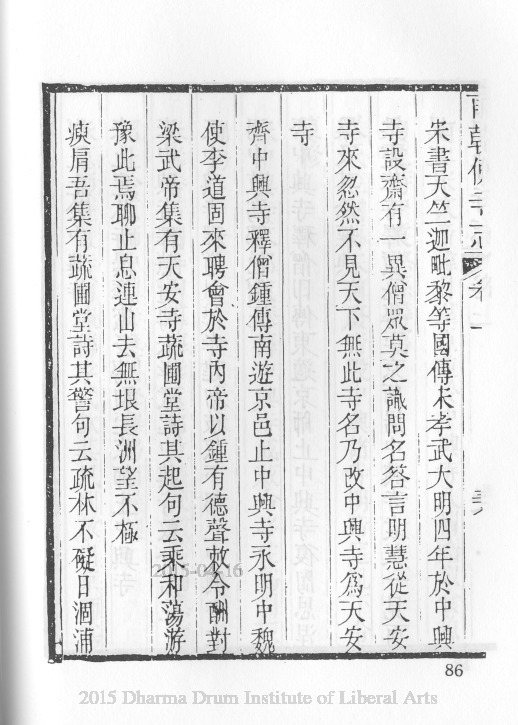 南朝佛寺志 卷一
宋書天竺迦毗黎等國傳宋孝武大明四年於中興
寺設齋有一異僧眾莫之識問名答言明慧從天安
寺來忽然不見天下無此寺名乃改中興寺爲天安
寺
齊中興寺釋僧鍾傳南遊京邑止中興寺永明中魏
使李道固來聘會於寺內帝以鍾有德聲敕令酬對
梁武帝集有天安寺蔬圃堂詩其起句云乘和蕩游
豫此焉聊止息連山去無垠長洲望不極
庾肩吾集有蔬圃堂詩其警句云疏林不礙日涸浦
86
2015-04-16
2015 Dharma Drum Institute of Liberal Arts